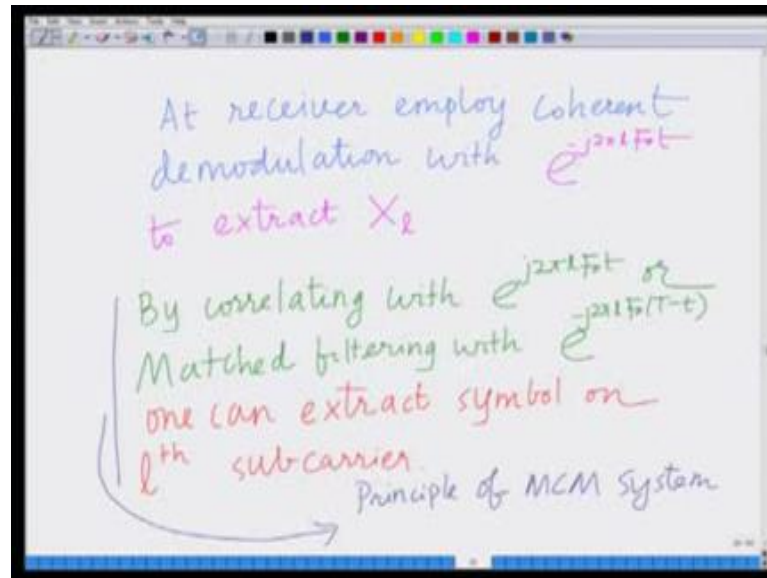 At receiver employ coherent
demodulation with e^{-j2πlF₀t}
to extract X_l
By correlating with e^{j2πlF₀t} or
Matched filtering with e^{-j2πlF₀(T-t)}
one can extract symbol on
l^{th} subcarrier.
Principle of MCM system